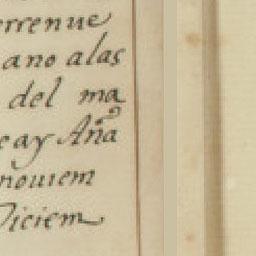 errenue
ano alas
del ma
eay Aña
nouiem
Diciem